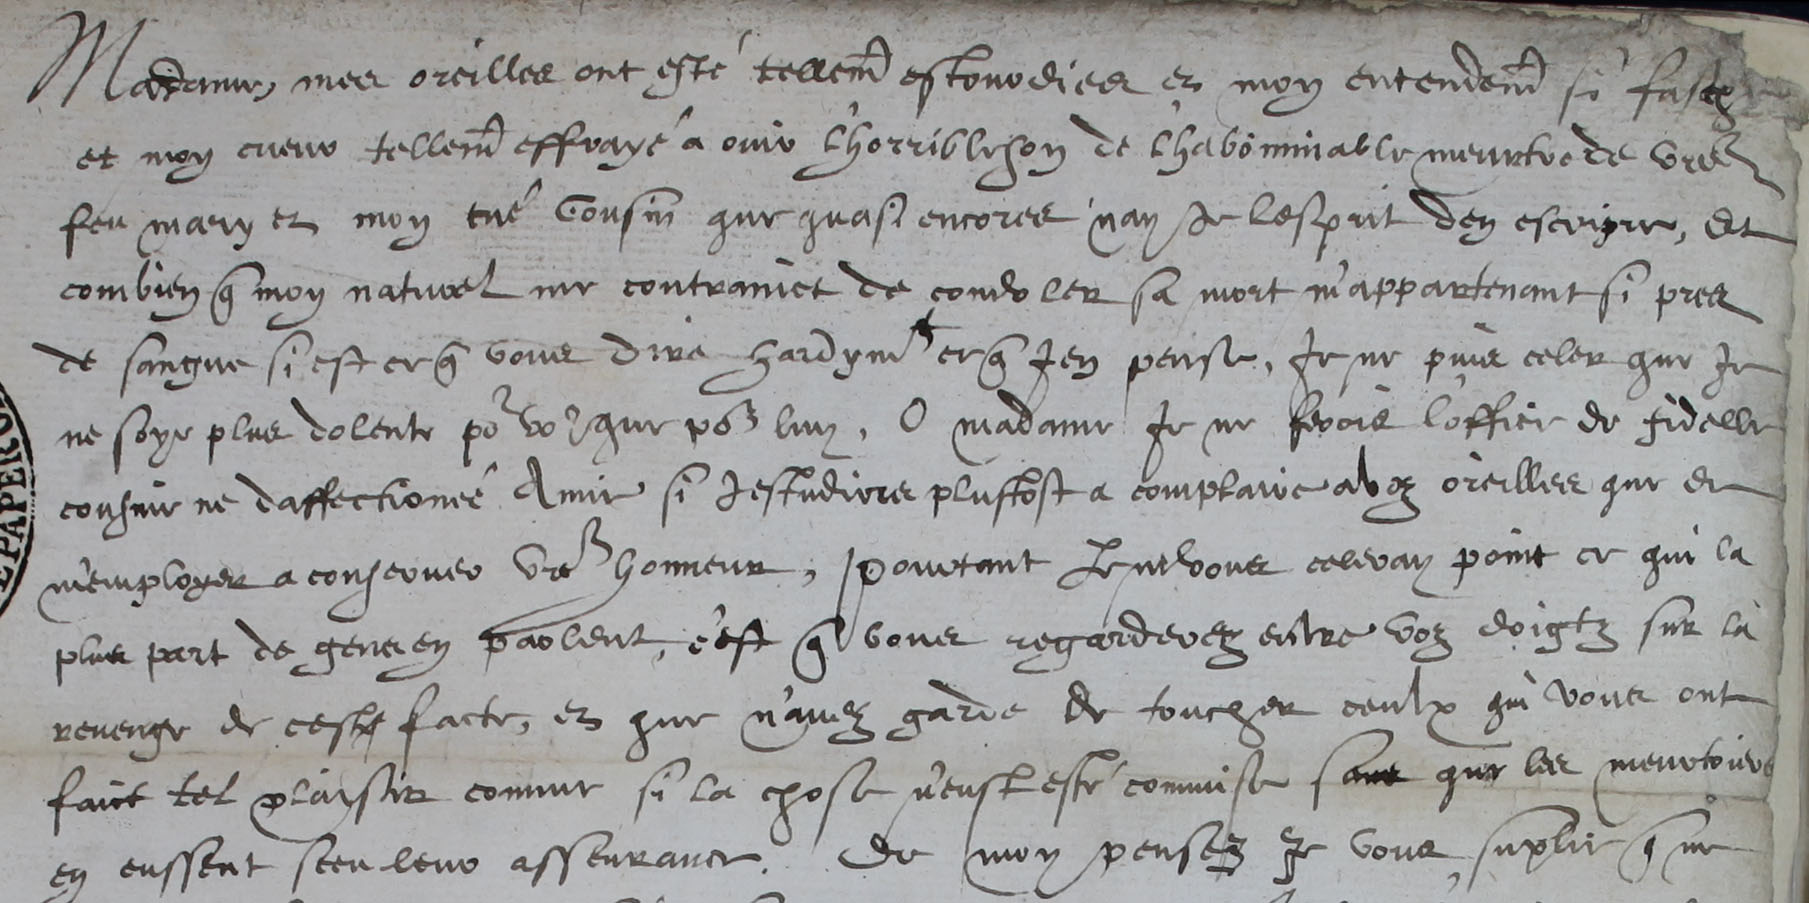 Madame, mes oreilles ont esté tellem̃t estourdies et mon entendem̃t si faschè
et mon cueur tellem̃t effrayé a ouir l'horrible son de l'habominable meurtre de vr̃e
feu mary et mon tué Cousin que quasi encores n'ay Je lesprit d'en escripre, Et
combien q̃ mon naturel me contrainct de condoler sa mort m'appartenant si pres
de sangue si est ce q̃ vous dire hardym̃t ce q̃ J'en pense, Je ne puis celer que Je
ne soye plus dolente po^r vo^s que po^r luy, O madame Je ne ferois l'office de fidelle
cousine ne d'affectionée Amie si J'estudiois plustost a complaire a voz oreilles que de
m'employer a conserver vr̃e honneur, pourtant Je ne vous celeray point ce que la
plus part de gens en parlent, c'est q̃ vous regarderez entre voz doigtz sur la
revenge de cest facte, et que n'avez garde de toucher ceulx qui vous ont
faict tel plaisir comme si la chose n'eust esté commise sans que les meurtriers
en eussent sceu leur asseurance. De moy pensez Je vous suplie q̃ ne
EPAPERO